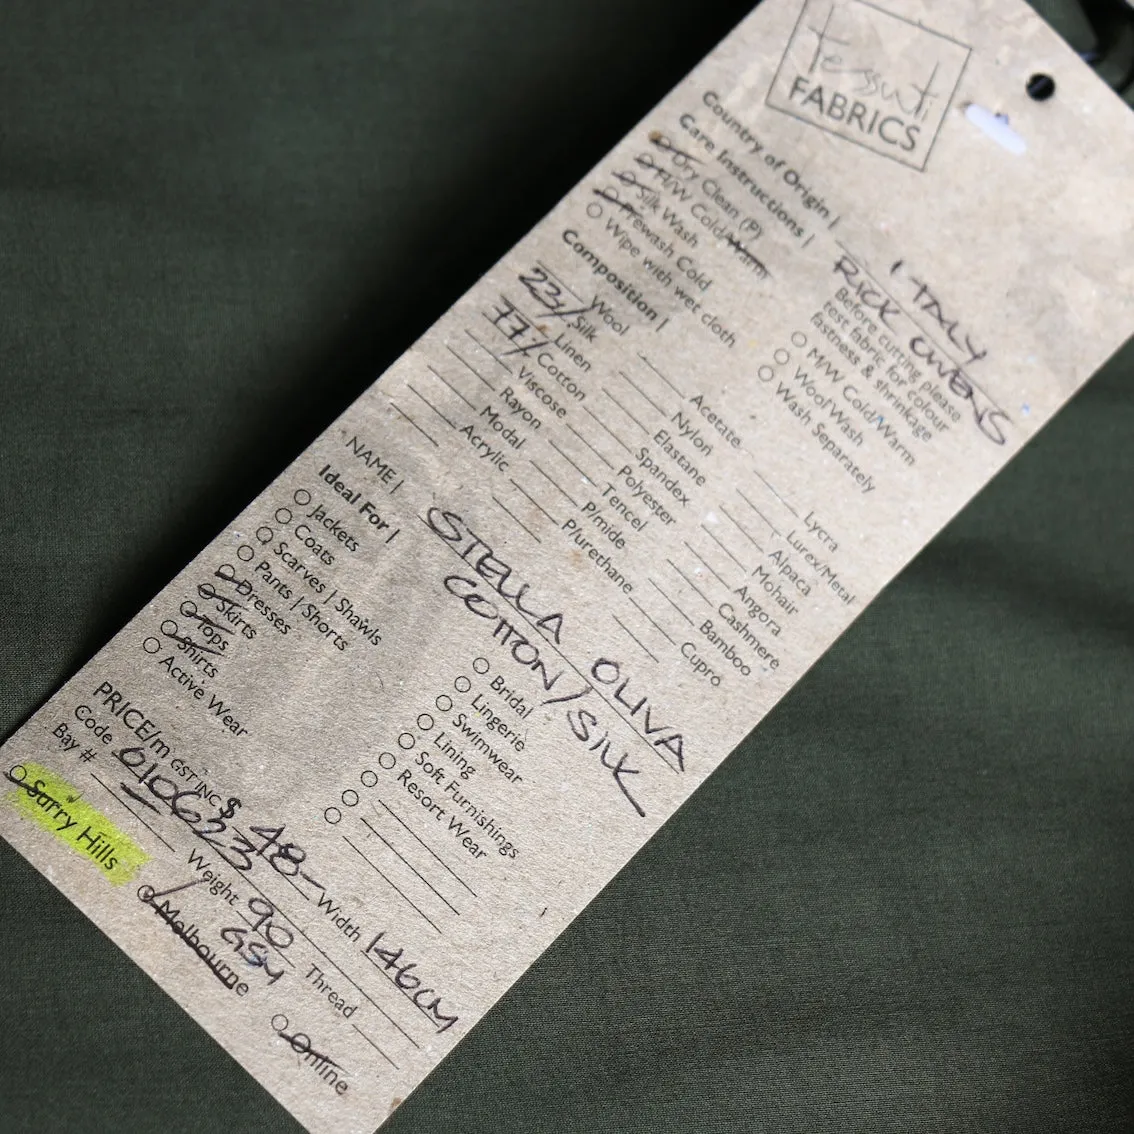 Tessuti
FABRICS
Country of Origin | ITALY
RICK OWENS
Care Instructions |
Dry Clean (P)
H/W Cold/Warm
Silk Wash
Prewash Cold
Wipe with wet cloth
Before cutting please
test fabric for colour
fastness & shrinkage
M/W Cold/Warm
Wool Wash
Wash Separately
Composition |
Wool
23% Silk
Linen
77% Cotton
Viscose
Rayon
Modal
Acrylic
Acetate
Nylon
Elastane
Spandex
Polyester
Tencel
P/mide
P/urethane
Lycra
Lurex/Metal
Alpaca
Mohair
Angora
Cashmere
Bamboo
Cupro
NAME | STELLA OLIVA
COTTON/SILK
Ideal For |
Jackets
Coats
Scarves | Shawls
Pants | Shorts
Dresses
Skirts
Tops
Shirts
Active Wear
Bridal
Lingerie
Swimwear
Lining
Soft Furnishings
Resort Wear
PRICE/m GST INC $ 48- Width 146CM
Code 0106223 Weight 90 GSM Thread
Bay #
Surry Hills
Melbourne
Online